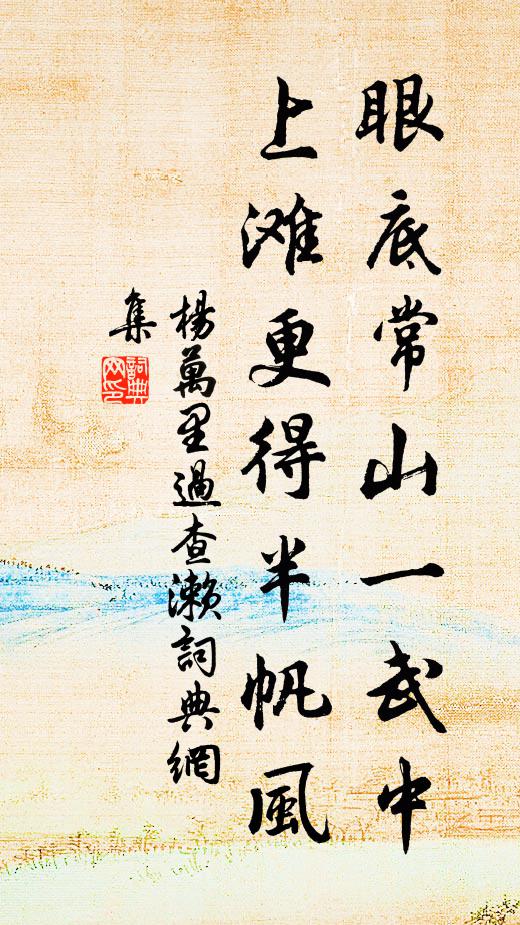 眼底常山一武中
上滩更得半帆風
楊萬里過查瀨詞典網
集
詞典網印